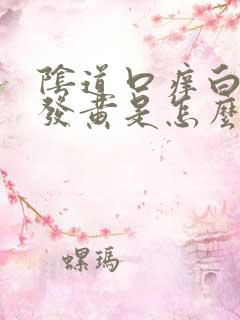 陰道口痒白
發黃是怎麼
螺瑪